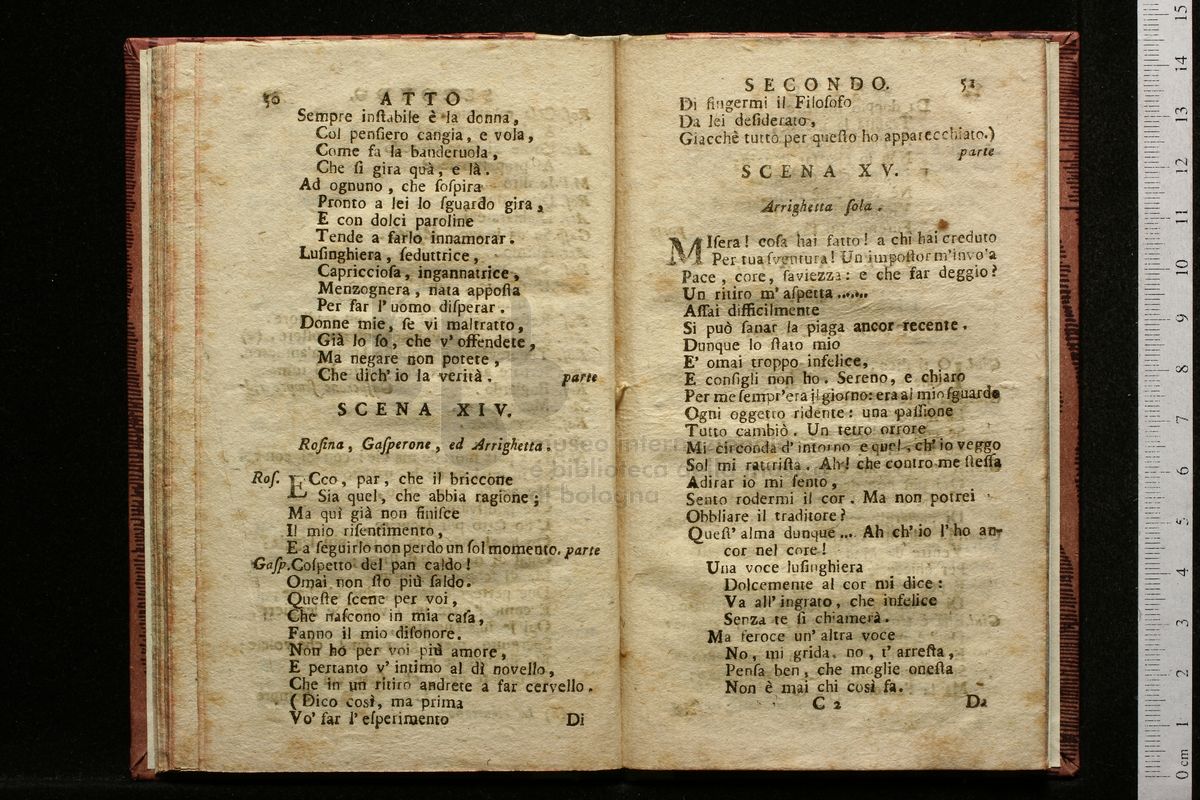 50 ATTO
Sempre inſtabile è la donna,
Col penſiero cangia, e vola,
Come fa la banderuola,
Che ſi gira quà, e là.
Ad ognuno, che ſoſpira
Pronto a lei lo ſguardo gira,
E con dolci paroline
Tende a farlo innamorar.
Luſinghiera, ſeduttrice,
Capricciosa, ingannatrice,
Menzognera, nata appoſta
Per far l'uomo diſperar.
Donne mie, ſe vi maltratto,
Già lo ſo, che v'offendete,
Ma negare non potete,
Che dich'io la verità. parte
SCENA XIV.
Roſina, Gaſperone, ed Arrighetta.
Roſ. ECco, par, che il briccone
Sia quel, che abbia ragione;
Ma quì già non finiſce
Il mio riſentimento,
E a ſeguirlo non perdo un ſol momento. parte
Gaſp. Coſpetto del pan caldo!
Omai non ſto più ſaldo.
Queſte ſcene per voi,
Che naſcono in mia caſa,
Fanno il mio diſonore.
Non ho per voi più amore,
E pertanto v'intimo al dì novello,
Che in un ritiro andrete a far cervello.
(Dico così, ma prima
Vo' far l'eſperimento
Di
SECONDO. 51
Di fingermi il Filoſofo
Da lei deſiderato,
Giacchè tutto per queſto ho apparecchiato.)
parte
SCENA XV.
Arrighetta ſola.
MIſera! coſa hai fatto! a chi hai creduto
Per tua ſventura! Un impoſtor m'invo'a
Pace, core, ſaviezza: e che far deggio?
Un ritiro m'aſpetta ......
Aſſai difficilmente
Si può ſanar la piaga ancor recente.
Dunque lo ſtato mio
E' omai troppo infelice,
E conſigli non ho. Sereno, e chiaro
Per me ſempr'era il giorno: era al mio ſguardo
Ogni oggetto ridente: una paſſione
Tutto cambiò. Un tetro orrore
Mi circonda d'intorno e quel, ch'io veggo
Sol mi rattriſta. Ah! che contro me ſteſſa
Adirar io mi ſento,
Sento rodermi il cor. Ma non potrei
Obbliare il traditore?
Queſt'alma dunque... Ah ch'io l'ho an-
cor nel core!
Una voce luſinghiera
Dolcemente al cor mi dice:
Va all'ingrato, che infelice
Senza te ſi chiamerà.
Ma feroce un'altra voce
No, mi grida, no, t'arreſta,
Penſa ben, che moglie oneſta
Non è mai chi così fa.
C 2 Da